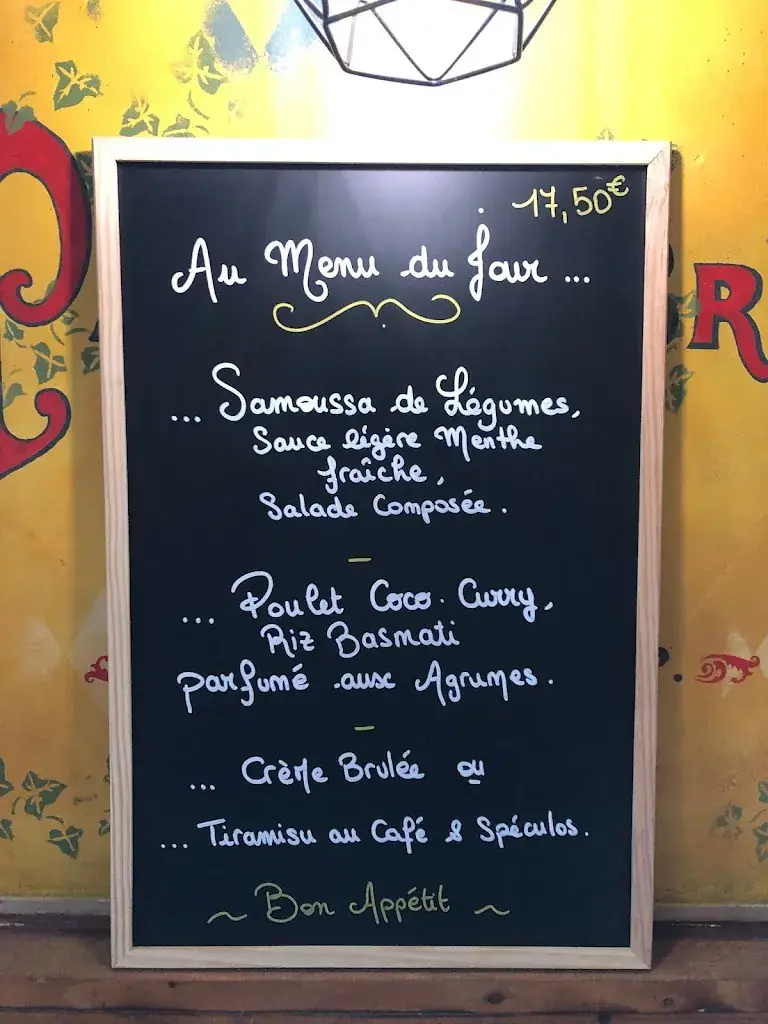 17,50€
Au Menu du Jour ...
... Samoussa de Légumes,
Sauce légère Menthe
fraîche,
Salade Composée.
... Poulet Coco. Curry,
Riz Basmati
parfumé aux Agrumes.
... Crème Brulée ou
... Tiramisu au Café & Spéculos.
~ Bon Appétit ~